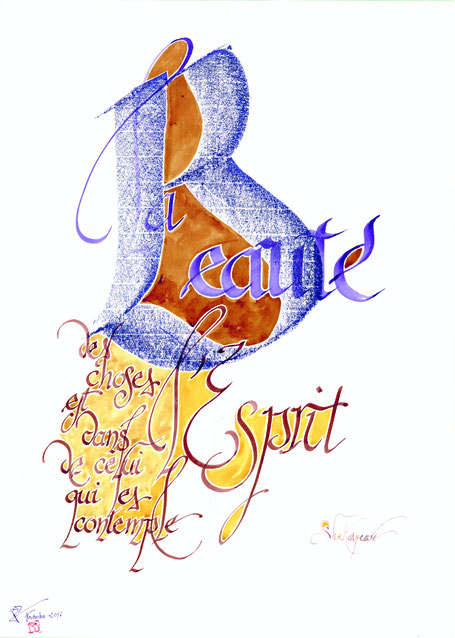 La
Beauté
des
choses
est
dans l'Esprit
de celui
qui les
contemple
Shakespeare